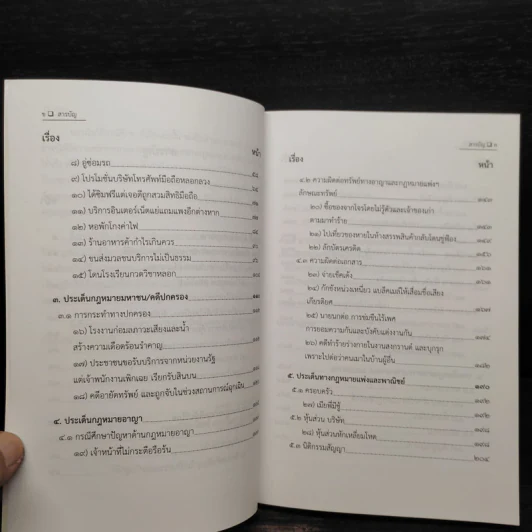 ๖ ❑ สารบัญ
เรื่อง
หน้า
๘) อู่ซ่อมรถ
๙) โปรโมชั่นบริษัทโทรศัพท์มือถือหลอกลวง
๑๐) ได้ซิมฟรีแต่เจอคดีถูกสวมสิทธิมือถือ
๑๑) บริการอินเตอร์เน็ตแย่แถมแพงอีกต่างหาก
๑๒) หอพักโกงค่าไฟ
๑๓) ร้านอาหารค้ากำไรเกินควร
๑๔) ขนส่งมวลชนบริการไม่เป็นธรรม
๑๕) โดนโรงเรียนกวดวิชาหลอก
๓. ประเด็นกฎหมายมหาชน/คดีปกครอง
๓.๑ การกระทำทางปกครอง
๑๖) โรงงานก่อมลภาวะเสียงและน้ำ
สร้างความเดือดร้อนรำคาญ
๑๗) ประชาชนขอรับบริการจากหน่วยงานรัฐ
แต่เจ้าพนักงานเพิกเฉย เรียกรับสินบน
๑๘) คดีอายัดทรัพย์ และถูกจับในช่วงสถานการณ์ฉุกเฉิน
๔. ประเด็นกฎหมายอาญา
๔.๑ กรณีศึกษาปัญหาด้านกฎหมายอาญา
๑๙) เจ้าหน้าที่ไม่กระตือรือร้น
สารบัญ ❑
เรื่อง
หน้า
๔.๒ ความผิดต่อทรัพย์ทางอาญาและกฎหมายแพ่งฯ
ลักษณะทรัพย์
๒๐) ซื้อของจากโจรโดยไม่รู้ตัวและเจ้าของเก่า
ตามมาทำร้าย
๒๑) ไปเที่ยวของหายในห้างสรรพสินค้ากลับโดนขู่ฟ้อง
๒๒) ลักบัตรเครดิต
๔.๓ ความผิดต่อเอกสาร
๒๓) จ่ายเช็คเด้ง
๒๔) กักขังหน่วงเหนี่ยว แบล็คเมล์ให้เสื่อมชื่อเสียง
เกียรติยศ
๒๕) นายนกต่อ การข่มขืนไร้เพศ
การยอมความกันและบังคับแต่งงานกัน
๒๖) คดีทำร้ายร่างกายในงานสงกรานต์ และบุกรุก
เพราะไปต่อว่าคนเมาในบ้านผู้อื่น
๕. ประเด็นทางกฎหมายแพ่งและพาณิชย์
๕.๑ ครอบครัว
๒๗) เมียพี่มีชู้
๕.๒ หุ้นส่วน บริษัท
๒๘) หุ้นส่วนหักเหลี่ยมโหด
๕.๓ นิติกรรมสัญญา